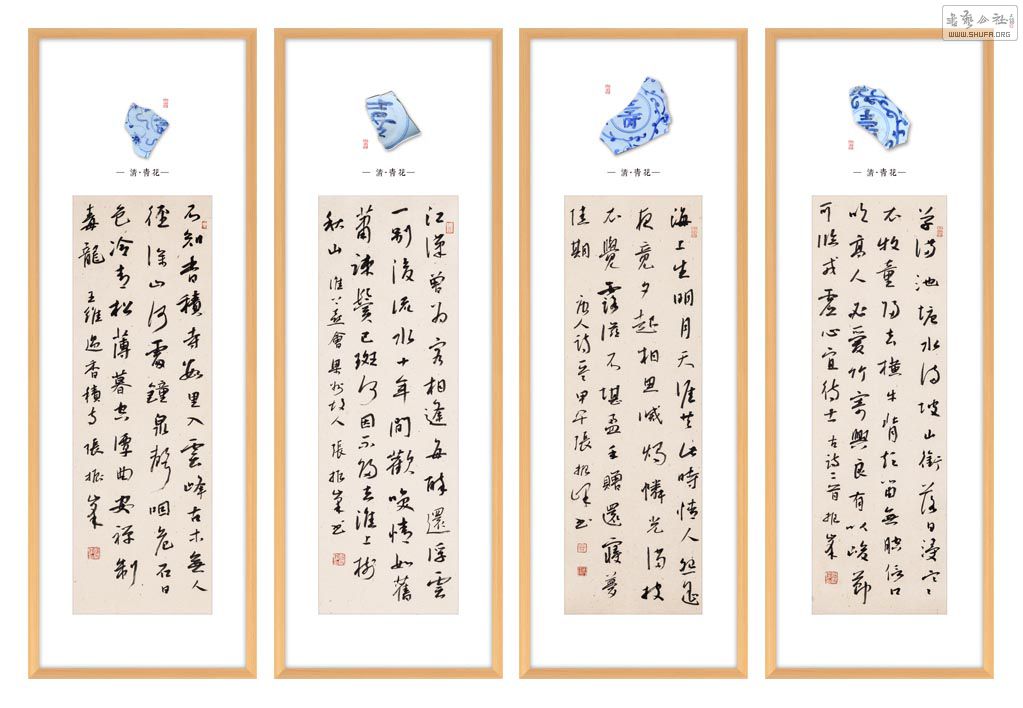 书艺公社
WWW.SHUFA.ORG
清·青花
草滿池塘水滿陂山銜落日浸寒漪
牧童歸去橫牛背短笛無腔信口
吹高人必愛竹寄興良有以峻節
可臨戎虛心宜待士 古詩二首 振峯
清·青花
海上生明月天涯共此時情人怨遥
夜竟夕起相思滅燭憐光滿披
衣覺露滋不堪盈手贈還寢夢
佳期 唐人詩意甲午張振峯書
清·青花
江漢曾為客相逢每醉還浮雲
一别後流水十年間歡笑情如舊
蕭疎鬢已斑何因不歸去淮上對
秋山 淮上喜會梁州故人 張振峯書
清·青花
不知香積寺數里入雲峰古木無人
徑深山何處鐘泉聲咽危石日
色冷青松薄暮空潭曲安禪制
毒龍 王維過香積寺 張振峯